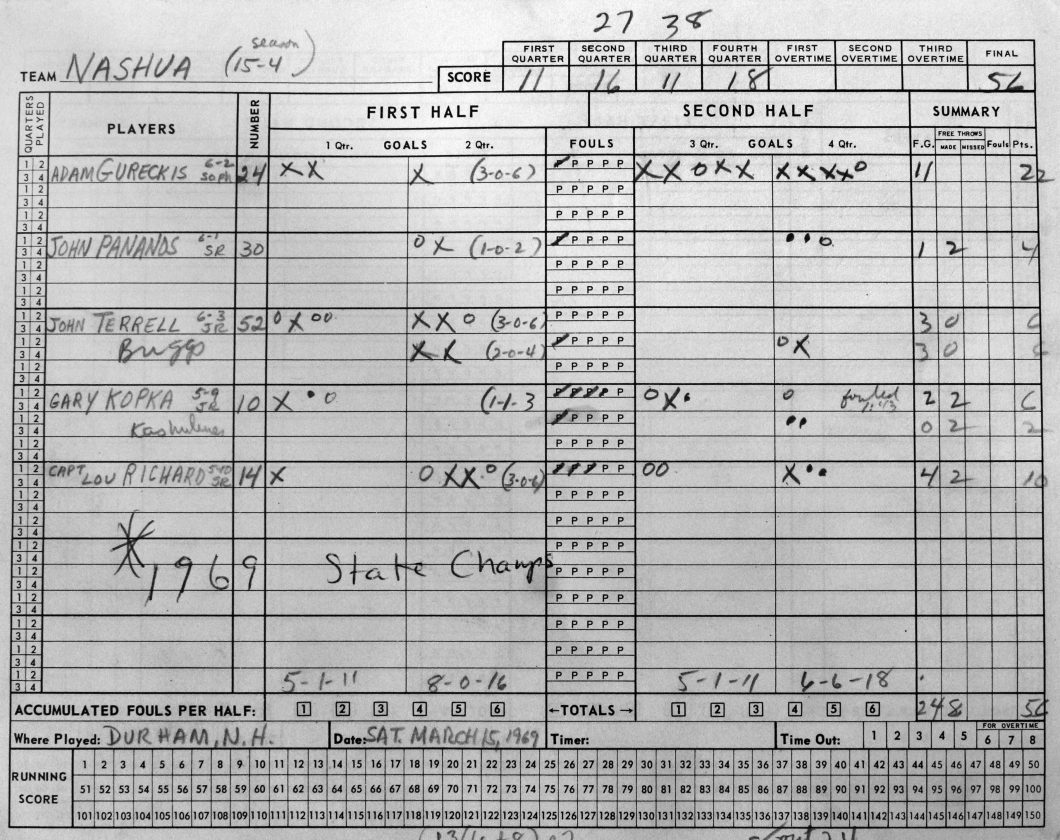 27 38
season
TEAM NASHUA (15-4)
SCORE
FIRST QUARTER SECOND QUARTER THIRD QUARTER FOURTH QUARTER FIRST OVERTIME SECOND OVERTIME THIRD OVERTIME FINAL
11 16 11 18 56
QUARTERS PLAYED PLAYERS NUMBER FIRST HALF SECOND HALF SUMMARY
1 Qtr. GOALS 2 Qtr. FOULS 3 Qtr. GOALS 4 Qtr. F.G. FREE THROWS MADE MISSED Fouls Pts.
ADAM GURECKIS 6-2 SOPH 24 XX X (3-0-6) P P P P XXOXX XXXXO 11 22
JOHN PANANOS 6-1 SR 30 OX (1-0-2) P P P P ••O 1 2 4
JOHN TERRELL 6-3 JR 52 OXOO XXO (3-0-6) P P P P 3 0 6
Briggs XX (2-0-4) P P P P OX 3 0 6
GARY KOPKA 5-9 JR 10 X•O (1-1-3 P OX• O fouled 1:43 2 2 6
•• 0 2 2
CAPT LOU RICHARD 5-10 SR 14 X OXXO (3-0-6) P P OO X•• 4 2 10
* 1969 State Champs
5-1-11 8-0-16 5-1-11 6-6-18
ACCUMULATED FOULS PER HALF: 1 2 3 4 5 6 ←TOTALS→ 1 2 3 4 5 6 24 8 56
Where Played: DURHAM, N.H. Date: SAT. MARCH 15, 1969 Timer: Time Out: 1 2 3 4 5 FOR OVERTIME 6 7 8
RUNNING SCORE
1 2 3 4 5 6 7 8 9 10 11 12 13 14 15 16 17 18 19 20 21 22 23 24 25 26 27 28 29 30 31 32 33 34 35 36 37 38 39 40 41 42 43 44 45 46 47 48 49 50
51 52 53 54 55 56 57 58 59 60 61 62 63 64 65 66 67 68 69 70 71 72 73 74 75 76 77 78 79 80 81 82 83 84 85 86 87 88 89 90 91 92 93 94 95 96 97 98 99 100
101 102 103 104 105 106 107 108 109 110 111 112 113 114 115 116 117 118 119 120 121 122 123 124 125 126 127 128 129 130 131 132 133 134 135 136 137 138 139 140 141 142 143 144 145 146 147 148 149 150